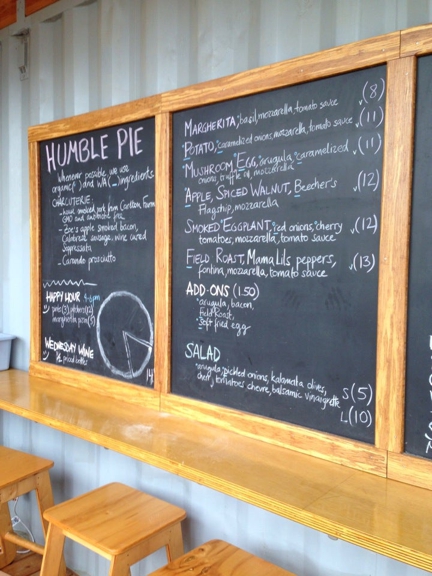 HUMBLE PIE
Whenever possible, we use
organic( ) and WA( ) ingredients
CHARCUTERIE-
- hand smoked pork from Carlton Farms
GMO and antibiotic free
- Zoe's apple smoked bacon,
Calabrese sausage, wine cured
Soppressata
- Creminelli prosciutto
HAPPY HOUR 4-6pm
pints(3) pitchers(12)
margherita pizza(5)
WEDNESDAY WINE
1/2 priced bottles
14
MARGHERITA, basil, mozzarella, tomato sauce (8)
POTATO, caramelized onions, mozzarella, tomato sauce (11)
MUSHROOM, EGG, arugula, caramelized (11)
onions, truffle oil, mozzarella
APPLE, SPICED WALNUT, Beecher's (12)
Flagship, mozzarella
SMOKED EGGPLANT, red onions, cherry (12)
tomatoes, mozzarella, tomato sauce
FIELD ROAST, MAMA LILS peppers, (13)
fontina, mozzarella, tomato sauce
ADD-ONS (1.50)
arugula, bacon,
Field Roast,
soft fried egg
SALAD
arugula, pickled onions, kalamata olives,
cherry tomatoes chevre, balsamic vinaigrette S(5)
L(10)